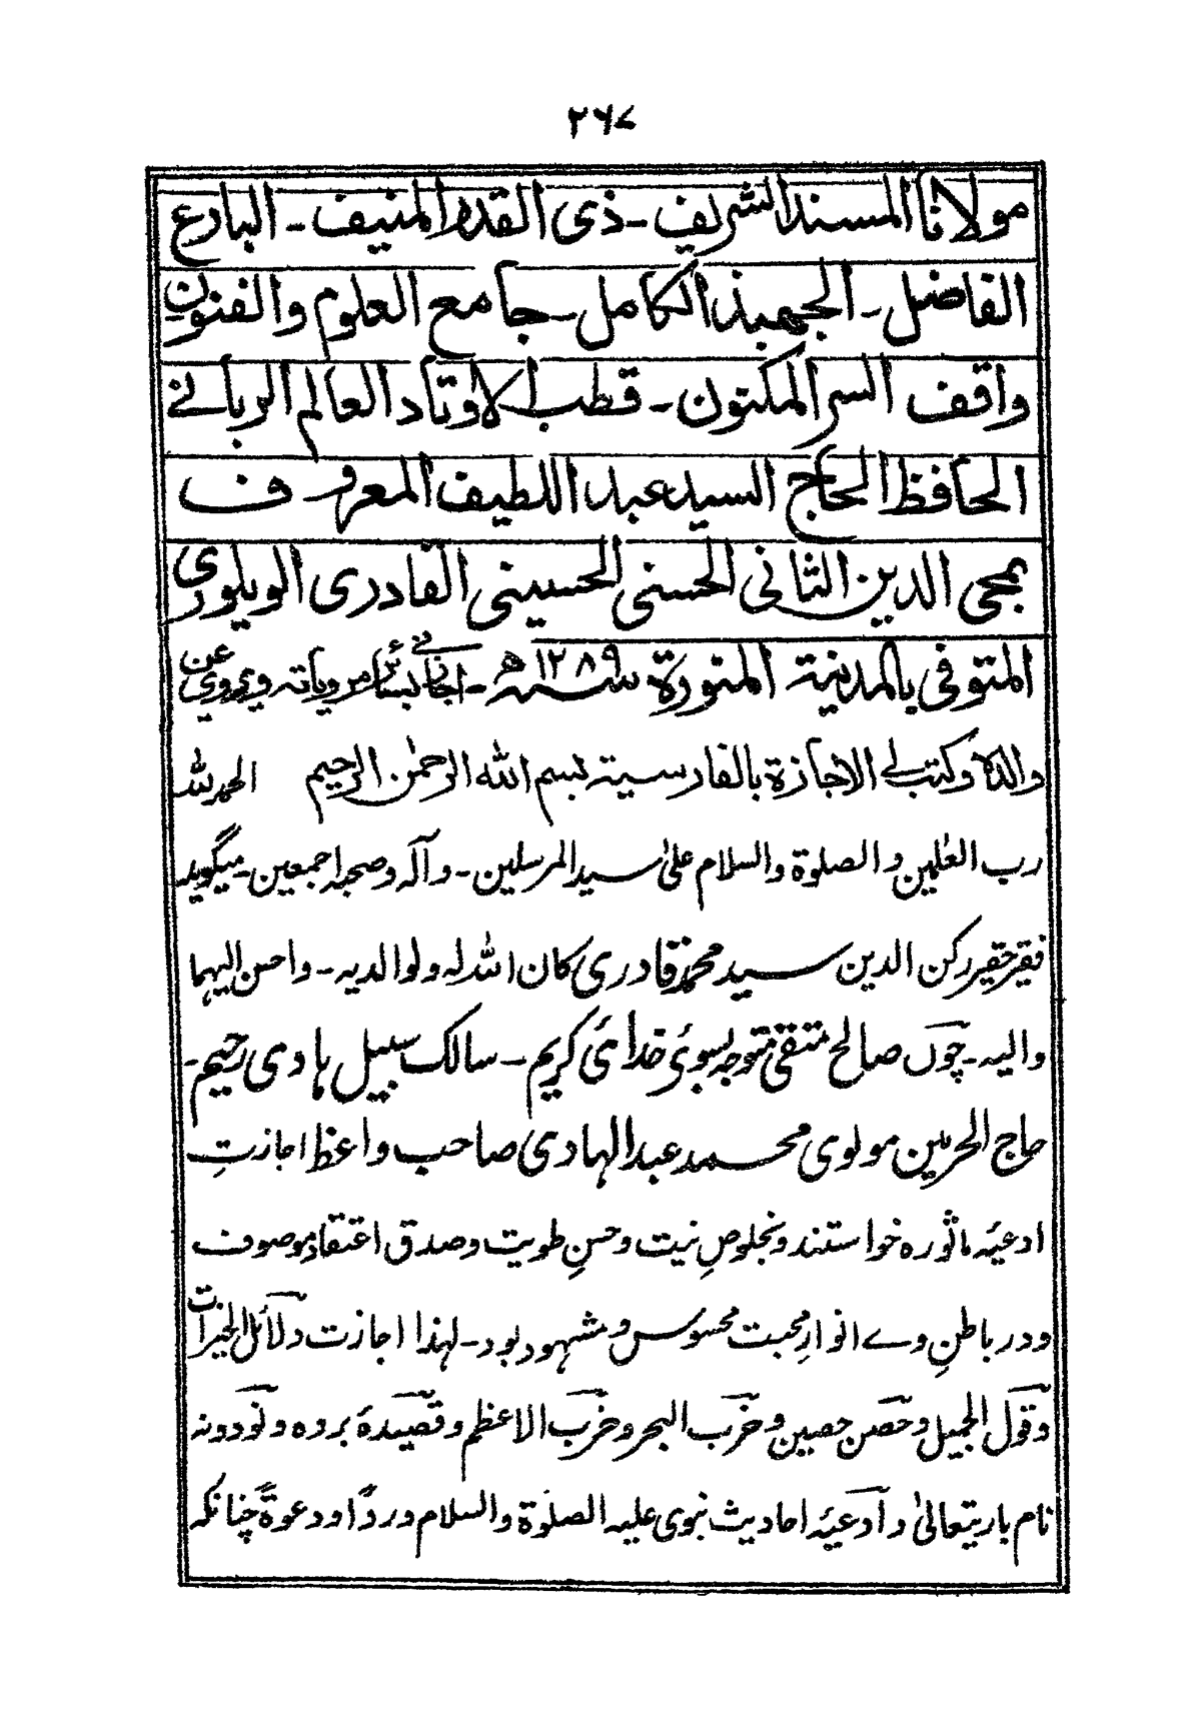 ۲۶۷
مولانا المسند الشریف ـ ذی القدر المنیف ـ البارع
الفاضل ـ الجهبذ الکامل ـ جامع العلوم والفنون
واقف السر المکتون ـ قطب الاوتاد العالم الربانے
الحافظ الحاج السید عبد اللطیف المعروف
بمحی الدین الثانی الحسنی الحسینی القادری الویلوری
المتوفی بالمدینة المنورة سنه ۱۲۸۹ھ ـ اجازنے بسائر مرویاته ویروی عن
والدہ وکتب لے الاجازة بالفارسیة بسم الله الرحمٰن الرحیم الحمد لله
رب العٰلمین والصلوة والسلام علیٰ سید المرسلین ـ وآله وصحبه اجمعین ـ میگوید
فقیر حقیر رکن الدین سید محمد قادری کان الله له ولوالدیه ـ واحسن الیهما
والیه ـ چوں صالح متقی متوجہ بسوئ خدائ کریم ـ سالک سبیل ہادی رحیم ـ
حاج الحرمین مولوی محمد عبد الهادی صاحب واعظ اجازتِ
ادعیۂ ماثورہ خواستند وبخلوصِ نیت وحسنِ طویت وصدق اعتقاد موصوف
ودر باطنِ وے انوارِ محبت محسوس ومشہود بود ـ لہذا اجازت دلائل الخیرات
وقول الجمیل وحصن حصین وحزب البحر وحزب الاعظم وقصیدۂ بردہ ونودونہ
نام باریتعالیٰ وادعیۂ احادیث نبوی علیه الصلوٰة والسلام درداً ودعوةً چنانکہ